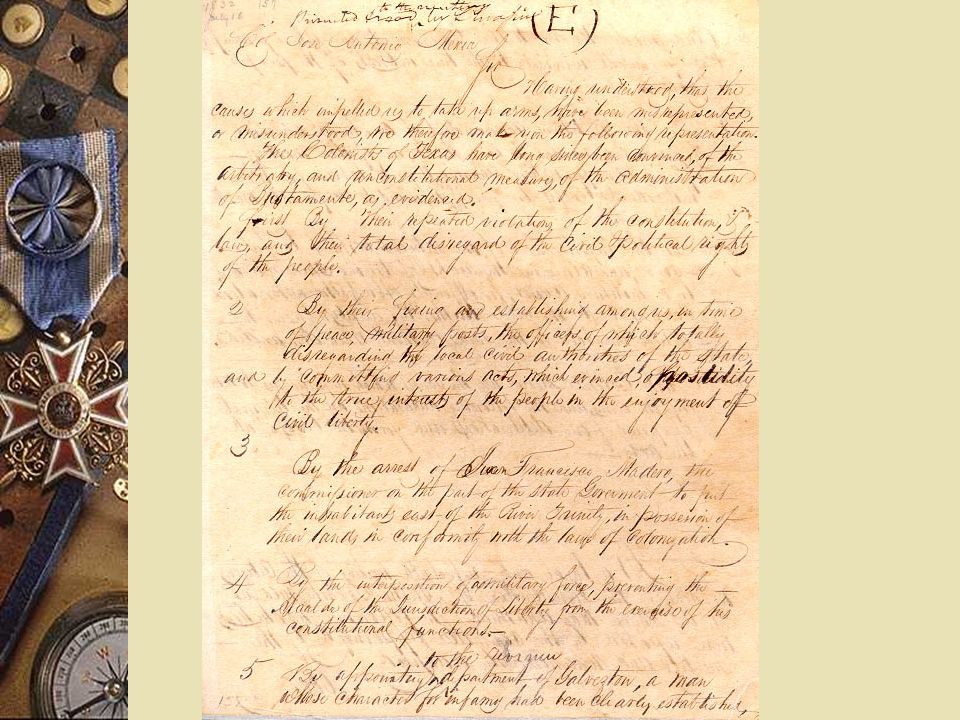 1832 157
July 18
to the
Printed
(E)
Col Jose Antonio Mexia
Sir
Having understood, that the
causes which impelled us to take up arms, have been misrepresented,
or misunderstood, we therefore make you the following representation.
The Colonists of Texas have long since been convinced, of the
arbitrary, and unconstitutional measures, of the administration
of Bustamente, as evidenced.
First By their repeated violations of the constitution, &
laws, and their total disregard of the Civil & Political rights
of the people.
2 By their fixing and establishing among us, in time
of peace, military posts, the officers of which totally
disregarding the local civil authorities of the state
and by committing various acts, which evinced, opposition
to the true interests of the people in the enjoyment of
civil liberty.
3
By the arrest of Juan Francisco Madero, the
commissioner on the part of the state Goverment to put
the inhabitants east of the River Trinity, in possession of
their lands in conformity with the laws of Colonization.
4 By the interposition of a military force, preventing the
Alcalde of the Jurisdiction of Liberty from the exercise of his
constitutional functions.
to the Revenue
5 By appointing department of Galveston, a man
whose character for infamy had been clearly established,